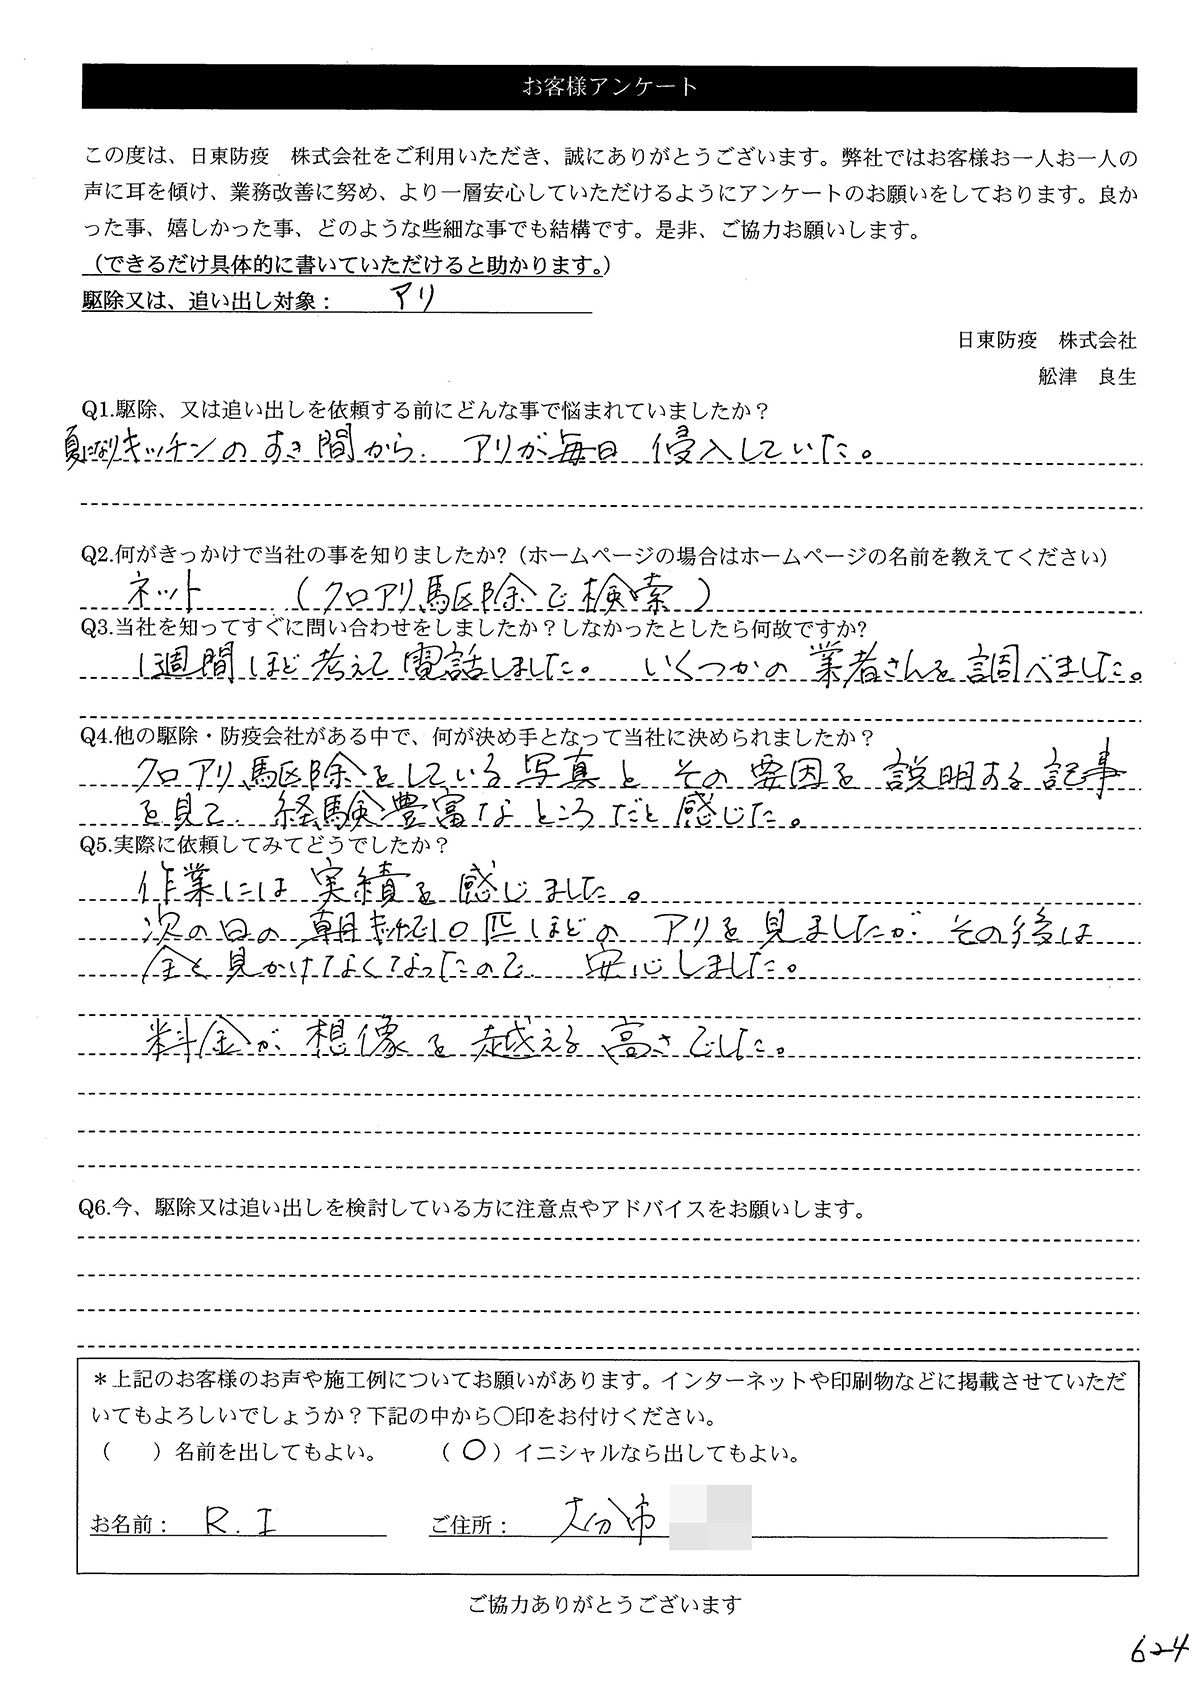 お客様アンケート
この度は、日東防疫　株式会社をご利用いただき、誠にありがとうございます。弊社ではお客様お一人お一人の
声に耳を傾け、業務改善に努め、より一層安心していただけるようにアンケートのお願いをしております。良か
った事、嬉しかった事、どのような些細な事でも結構です。是非、ご協力お願いします。
（できるだけ具体的に書いていただけると助かります。）
駆除又は、追い出し対象： アリ
日東防疫　株式会社
舩津　良生
Q1.駆除、又は追い出しを依頼する前にどんな事で悩まれていましたか？
夏になりキッチンのすき間から、アリが毎日 侵入していた。
Q2.何がきっかけで当社の事を知りましたか?（ホームページの場合はホームページの名前を教えてください）
ネット （クロアリ駆除で検索）
Q3.当社を知ってすぐに問い合わせをしましたか？しなかったとしたら何故ですか?
1週間ほど考えて電話しました。 いくつかの業者さんを調べました。
Q4.他の駆除・防疫会社がある中で、何が決め手となって当社に決められましたか？
クロアリ駆除をしている写真と その要因を説明する記事
を見て、経験豊富なところだと感じた。
Q5.実際に依頼してみてどうでしたか？
作業には実績を感じました。
次の日の朝キッチンで10匹ほどの アリを見ましたが、その後は
全く見かけなくなったので、安心しました。
料金が想像を越える高さでした。
Q6.今、駆除又は追い出しを検討している方に注意点やアドバイスをお願いします。
＊上記のお客様のお声や施工例についてお願いがあります。インターネットや印刷物などに掲載させていただ
いてもよろしいでしょうか？下記の中から〇印をお付けください。
（　　）名前を出してもよい。　　（ 〇 ）イニシャルなら出してもよい。
お名前： R.I ご住所： 大分市
ご協力ありがとうございます
624